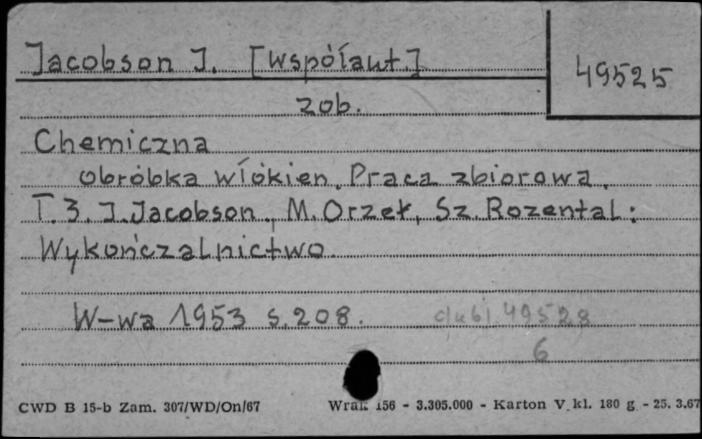 Jacobson J. [współaut.]
49525
zob.
Chemiczna
obróbka włókien. Praca zbiorowa.
T. 3. J. Jacobson, M. Orzeł, Sz. Rozental:
Wykończalnictwo.
W-wa 1953 s. 208.
49528
6
CWD B 15-b Zam. 307/WD/On/67
156 - 3.305.000 - Karton V kl. 180 g - 25. 3.67